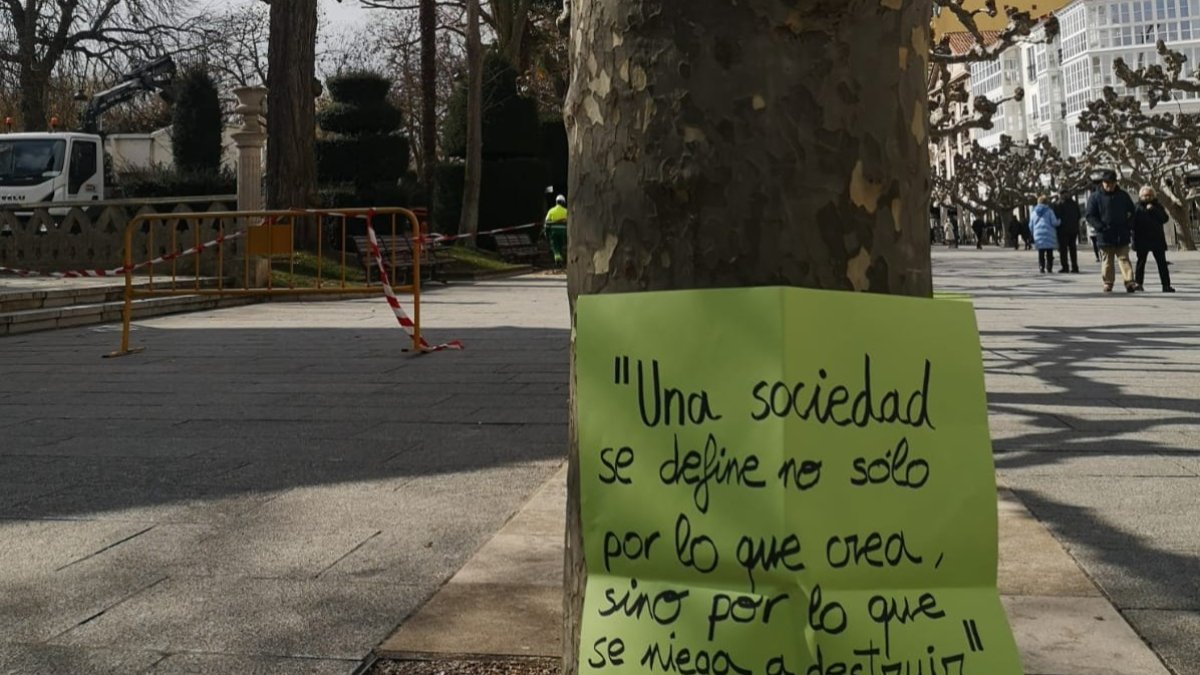 "Una sociedad
se define no sólo
por lo que crea,
sino por lo que
se niega a destruir"